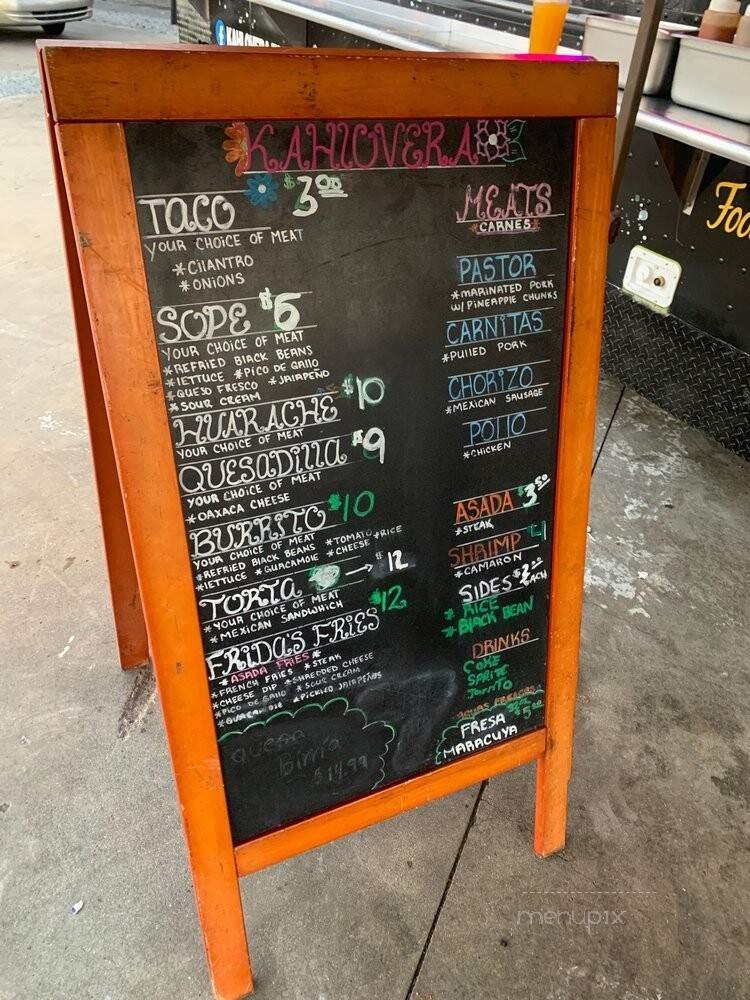 KAHLOVERA
TACO $3.00
YOUR CHOICE OF MEAT
*CILANTRO
*ONIONS
SOPE $6
YOUR CHOICE OF MEAT
*REFRIED BLACK BEANS
*LETTUCE *PICO DE GALLO
*QUESO FRESCO *JALAPEÑO
*SOUR CREAM
HUARACHE $10
YOUR CHOICE OF MEAT
QUESADILLA $9
YOUR CHOICE OF MEAT
*OAXACA CHEESE
BURRITO $10
YOUR CHOICE OF MEAT *TOMATO *RICE
*REFRIED BLACK BEANS *CHEESE
*LETTUCE *GUACAMOLE
TORTA → $12
*YOUR CHOICE OF MEAT
*MEXICAN SANDWHICH
FRIDA'S FRIES $12
*ASADA FRIES*
*FRENCH FRIES *STEAK
*CHEESE DIP *SHREDDED CHEESE
*PICO DE GALLO *SOUR CREAM
*GUACAMOLE *PICKLED JALAPEÑOS
quesa
birria
$14.99
MEATS
*CARNES*
PASTOR
*MARINATED PORK
W/ PINEAPPLE CHUNKS
CARNITAS
*PULLED PORK
CHORIZO
*MEXICAN SAUSAGE
POLLO
*CHICKEN
ASADA $3.50
*STEAK
SHRIMP $4
*CAMARON
SIDES $2.00 EACH
*RICE
*BLACK BEAN
DRINKS
COKE
SPRITE
JARRITO
AGUAS FRESCAS
$5.00
FRESA
MARACUYA
Foo
menupix